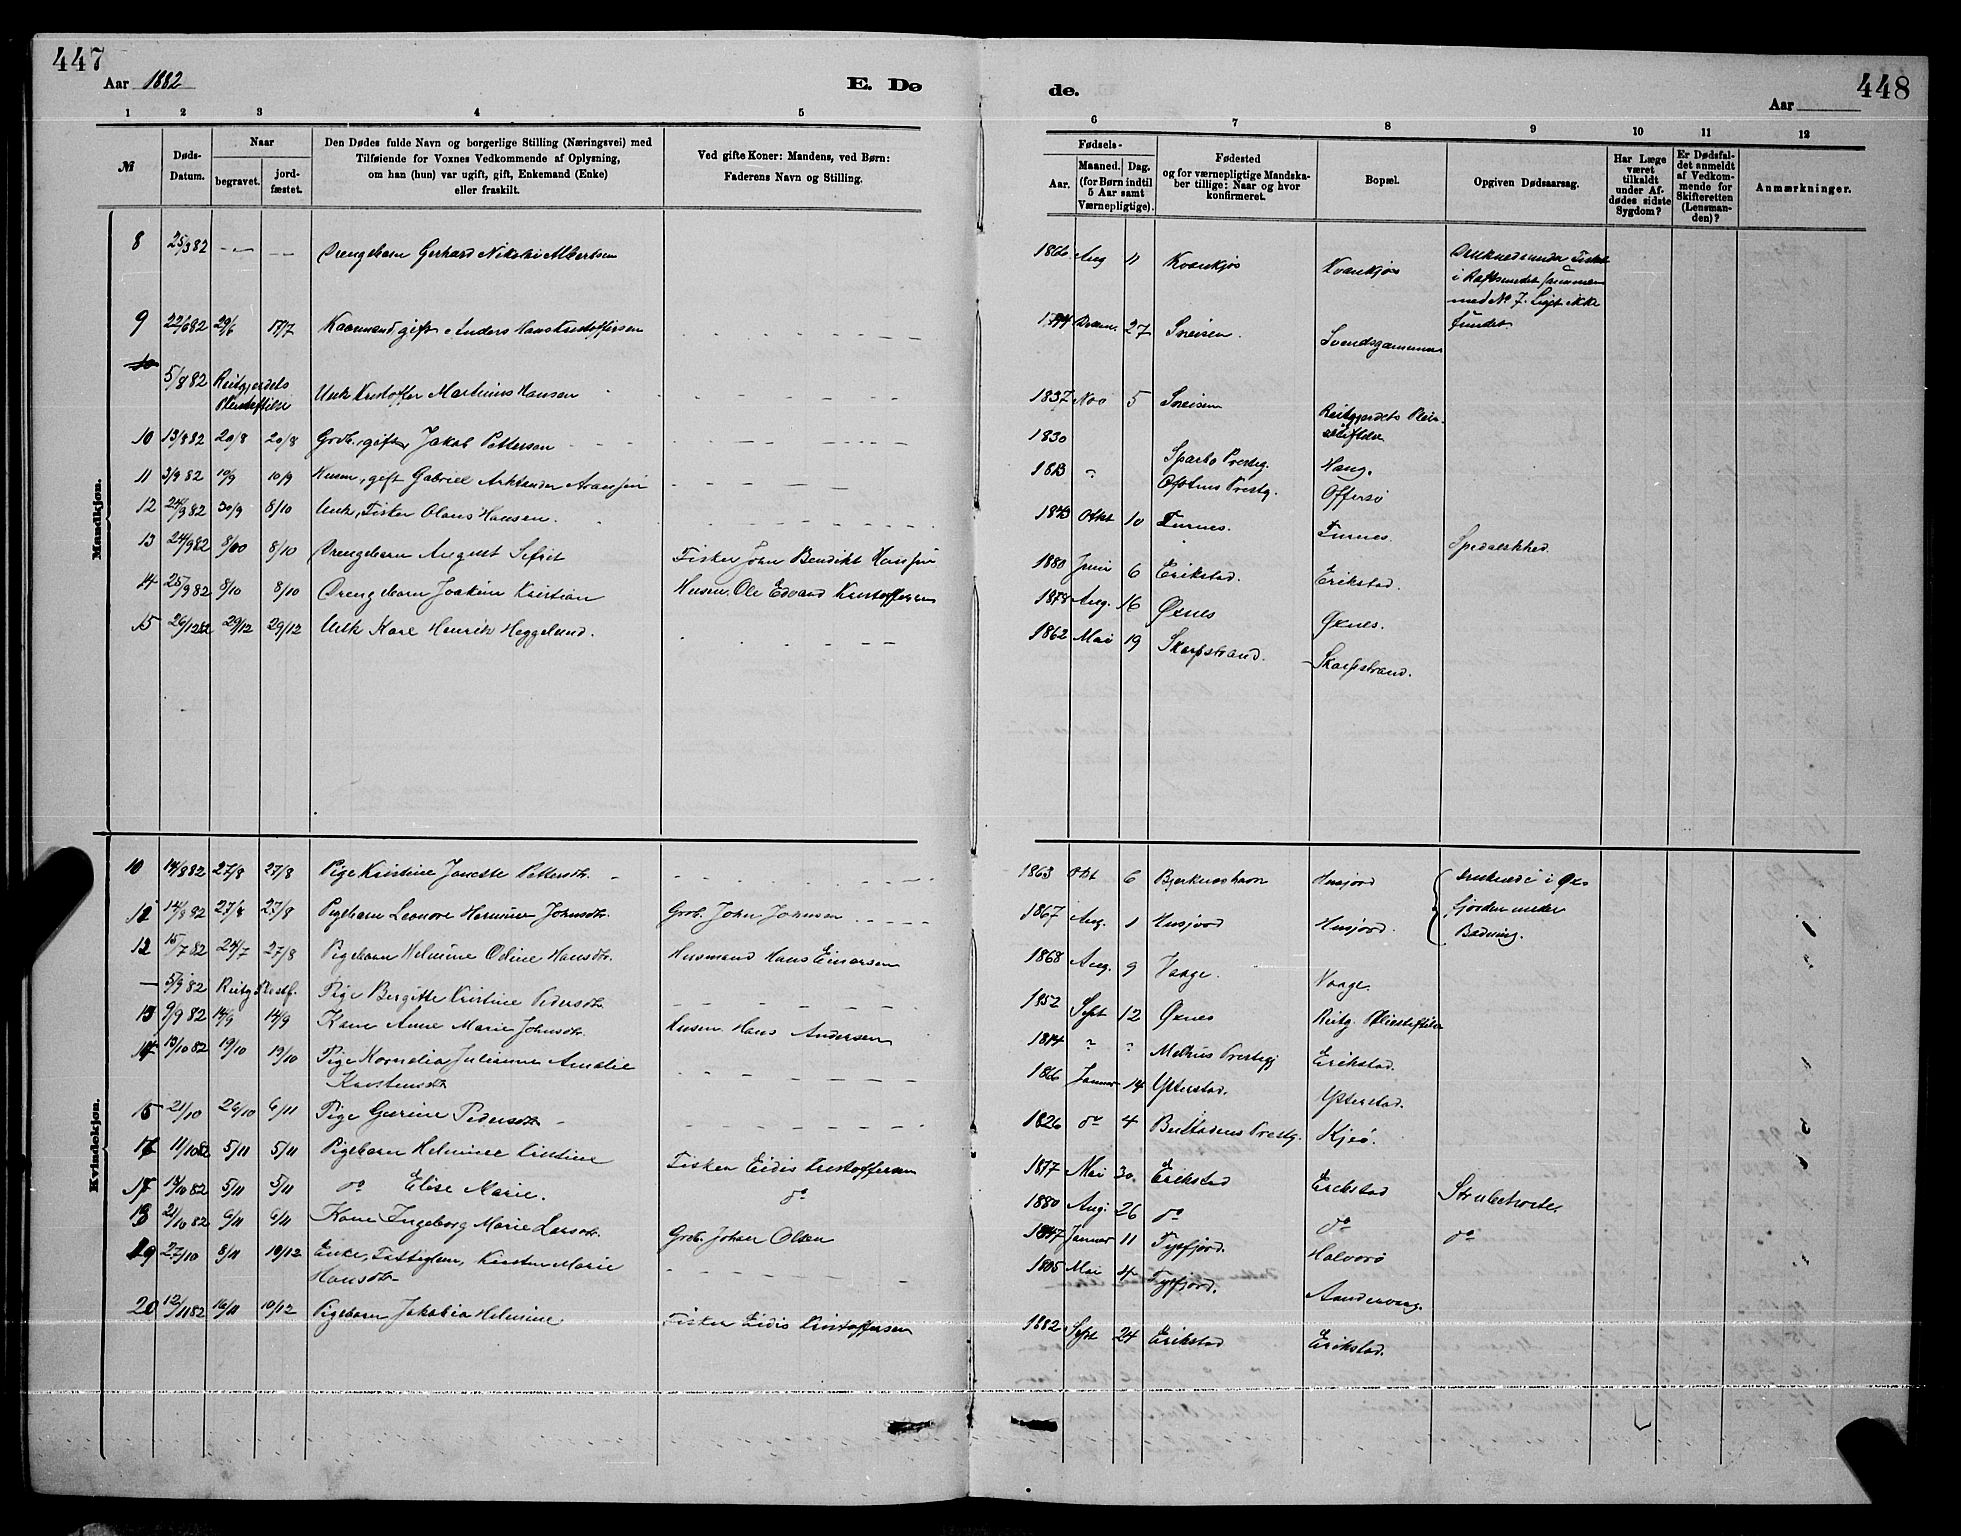 447
Aar 1882
E. Dø
de.
Aar
448
1 2 3 4 5
6 7 8 9 10 11 12
№
Døds-
Datum.
Naar
begravet.
jord-
fæstet.
Den Dødes fulde Navn og borgerlige Stilling (Næringsvei) med
Tilføiende for Voxnes Vedkommende af Oplysning,
om han (hun) var ugift, gift, Enkemand (Enke)
eller fraskilt.
Ved gifte Koner: Mandens, ved Børn:
Faderens Navn og Stilling.
Fødsels-
Aar.
Maaned. Dag.
(for Børn indtil
5 Aar samt
Værnepligtige).
Fødested
og for værnepligtige Mandska-
ber tillige: Naar og hvor
konfirmeret.
Bopæl.
Opgiven Dødsaarsag.
Har Læge
været
tilkaldt
under Af-
dødes sidste
Sygdom?
Er Dødsfal-
det anmeldt
af Vedkom-
mende for
Skifteretten
(Lensman-
den)?
Anmærkninger.
Mandkjøn.
8 25/3 82 - - - - Drengebarn Gerhard Nikolai Albertsen 1866 Aug 11 Kvankjøs Kvankjøs Druknede under Fiskeri
i Raftsundet sammen
med No 7. Liget ikke
fundet
9 22/6 82 29/6 17/7 Kaarmand, gift, Anders Hans Kristoffersen 27 Sneisen. Svendsgammen
10 5/8 82 Reitgjerdets
Pleiestiftelse Ungk Kristoffer Martinus Hansen 1837 Nov 5 Sneisen Reitgjerdets Pleie-
stiftelse
10 13/8 82 20/8 20/8 Grdb., gift, Jakob Pettersen 1830 Sparbo Prestg. Haug.
11 3/9 82 10/9 10/9 Husm, gift Gabriel Arntsen 1813 " Prestg. Offersø
12 24/9 82 30/9 8/10 Ungk, Fisker Olaus Hansen. 1843 Okt 10 Furnes. Furnes. Spedalskhed.
13 24/9 82 8/10 8/10 Drengebarn August Sefrit Fisker John Benedikt Hansen 1880 Juni 6 Erikstad. Erikstad.
14 25/9 82 8/10 8/10 Drengebarn Joakim Kristian Husm. Ole Edvard Kristoffersen 1878 Aug. 16 Øxnes Øxnes.
15 26/12 82 29/12 29/12 Ungk Karl Henrik Heggelund. 1862 Mai 19 Skarpstrand. Skarpstrand.
Kvindekjøn.
10 14/8 82 27/8 27/8 Pige Kristine Janette Pettersdtr. 1863 Okt 6 Bjerkneshavn Husjord Druknede i Øx-
fjorden under
Badning.
11 14/8 82 27/8 27/8 Pigebarn Leonore Hermine Johnsdtr. Grdb. John Johnsen 1867 Aug. 1 Husjord Husjord.
12 15/7 82 24/7 27/8 Pigebarn Helmine Odine Hansdtr. Husmand Hans Einersen 1868 Aug. 9 Vaage. Vaage.
— 5/9 82 Reitg. Plestf. Pige Bergitte Kristine Pedersdtr. 1852 Sept 12 Øxnes Reitg. Pleiestiftelse
13 9/9 82 14/9 14/9 Kone Anne Marie Johnsdtr. Husm. Hans Andersen 1814 " " Melhus Prestegj Erikstad.
14 13/10 82 19/10 19/10 Pige Kornelia Julianne Amalie
Karstensdtr 1866 Januar 14 Ytterstad. Ytterstad.
15 21/10 26/10 6/11 Pige Gurine Pedersdtr 1826 do 4 Prestg. Kjeø.
16 11/10 82 5/11 5/11 Pigebarn Helmine Kristine Fisker Eidis Kristoffersen 1877 Mai 30. Erikstad Erikstad Strubehoste.
17 14/10 82 5/11 5/11 do Elise Marie. do 1880 Aug. 26 do do do
18 21/10 82 6/11 6/11 Kone Ingeborg Marie Larsdtr. Grdb. Johan Olsen 1847 Januar 11 Tysfjord. Halvorø
19 27/10 8/11 10/12 Enke, Fattiglem, Kirsten Marie
Hansdtr 1805 Mai 4 Tysfjord. Aandervaag.
20 12/11 82 16/11 10/12 Pigebarn Jakobia Helmine Fisker Eidis Kristoffersen 1882 Sept 24 Erikstad Erikstad.